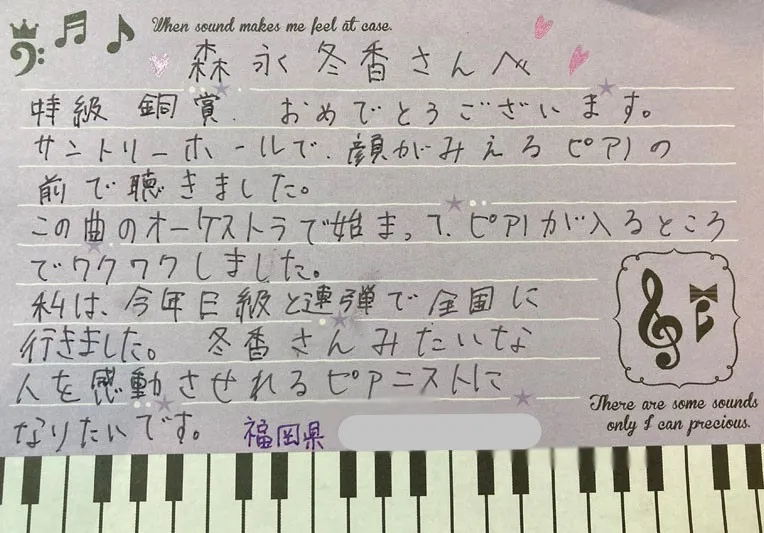 When sound makes me feel at case.
森永冬香さんへ
特級 銅賞. おめでとうございます。
サントリーホールで、顔がみえるピアノの
前で聴きました。
この曲のオーケストラで始まって、ピアノが入るところ
でワクワクしました。
私は、今年D級と連弾で全国に
行きました。 冬香さんみたいな
人を感動させれるピアニストに
なりたいです。 福岡県
There are some sounds
only I can precious.